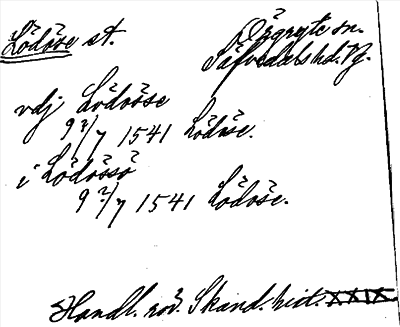 Lödöse st.
Örgryte sn.
Säfvedals hd. Vg.
vdj Lödosse
9 2/7 1541 Lödöse.
i Lödössö
9 2/7 1541 Lödöse.
Handl. rör. Skand. hist. XXIX